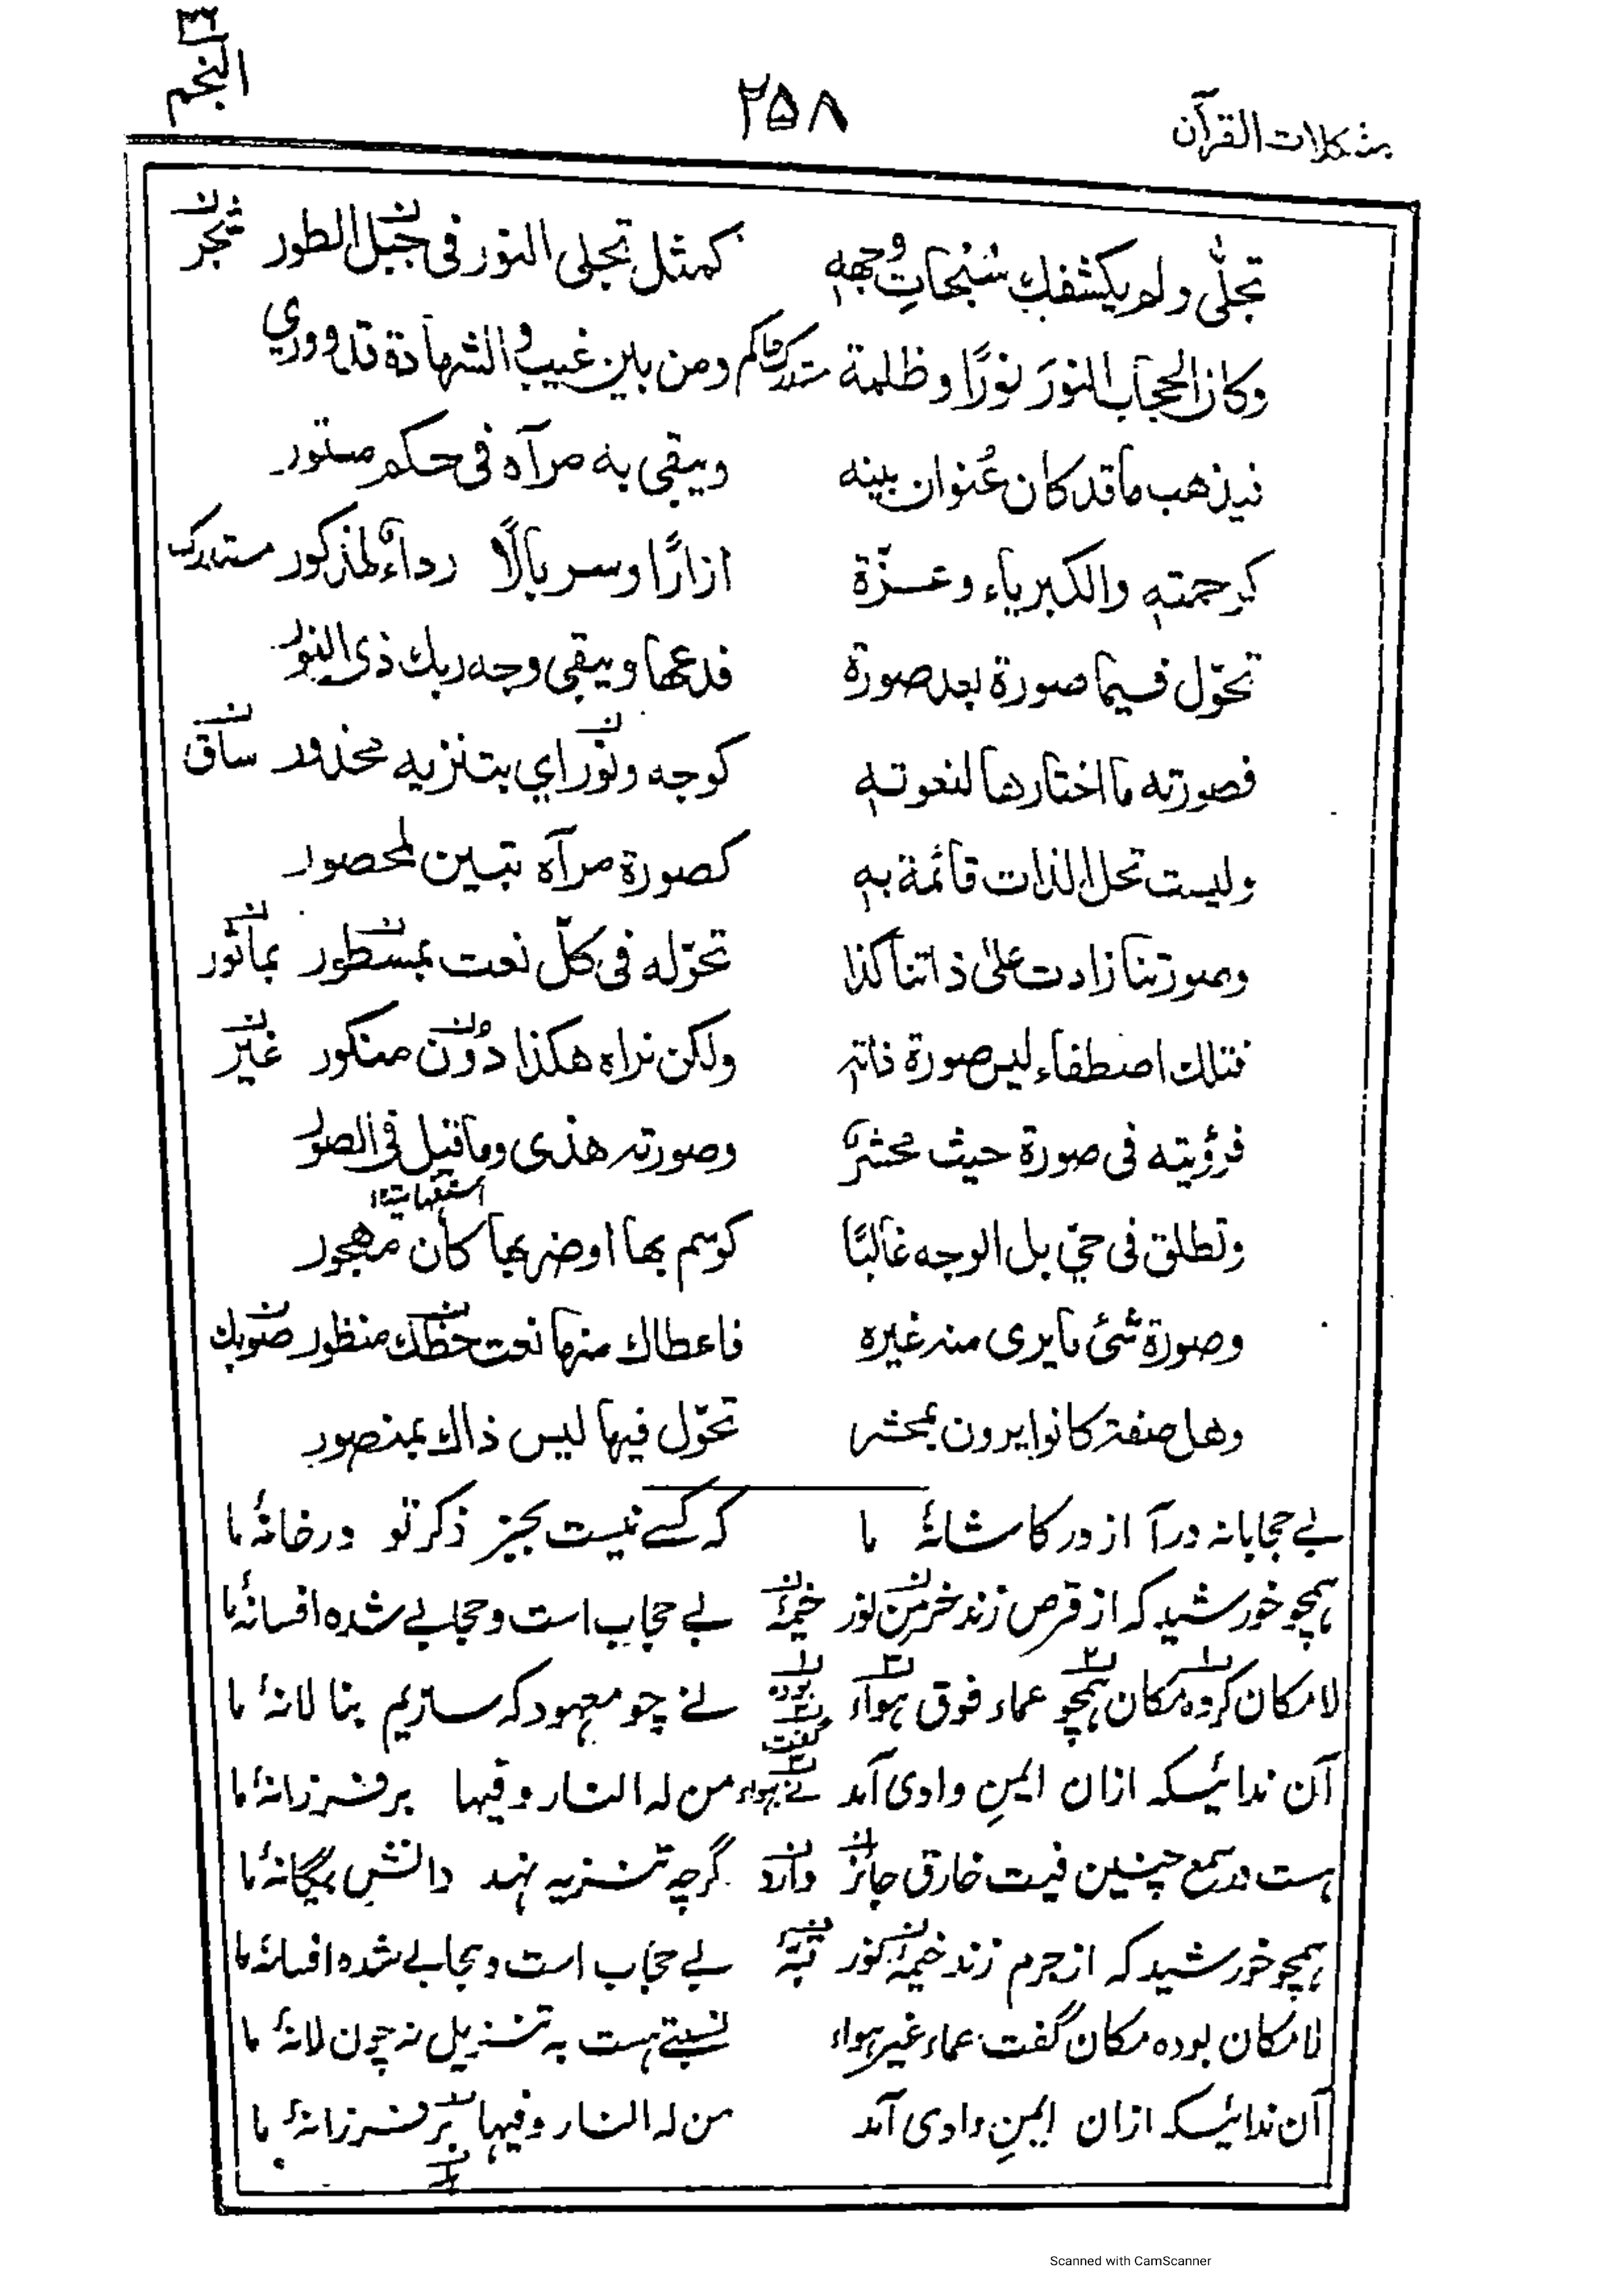 مشكلات القرآن
٢٥٨
النجم
٣٦
تجلّى ولم يكشف لك سُبُحاتِ وجههٖ كمثل تجلى النور فى جبل الطور شجر
وكان الحجاب النورَ نورًا وظلمة ومن بين غيب والشهادة قد ووري
فيذهب ما قد كان عُنوان بينه ويبقى به مرآه فى حكم مستور
كرحمتهٖ والكبرياء وعزّة ازارًا وسربالًا رداءً لمذكور مستدرك
تحوّل فيها صورة بعد صورة فدعها ويبقى وجه ربك ذى النور
فصورته ما اختارها لنعوتهٖ كوجه ونور اي بتنزيه محذور ساق
وليست تحل الذات قائمة بهٖ كصورة مرآه تبين لمحصور
وصورتنا زادت على ذاتنا كذا تحوّله فى كلّ نعت بمسطور بماثور
فتلك اصطفاء ليس صورة ذاتہٖ ولكن نراه هكذا دون منكور غير
فرؤيته فى صورة حيث محشر وصورتہ هذى وما قيل فى الصور
وتطلق فى حيّ بل الوجه غالبًا كوسم بها او ضربها كان مهجور
وصورة شئ ما يرى منہ غيره فاعطاك منها نعت حظك منظور صوبك
وهل صفة كانوا يرون بمحشر تحوّل فيها ليس ذاك بمنصور
بے حجابانہ درآ از در کاشانۂ ما کہ کسے نیست بجز ذکر تو در خانۂ ما
ہمچو خورشید کہ از قرص زند خرمن نور خیمۂ بے حجاب است وحجابے شدہ افسانۂ ما
لا مکان کردہ مکان ہمچو عماء فوق ہواء بودہ گفت نے چو معہود کہ سازیم بنا لانۂ ما
آن ندائیکہ ازان ایمنِ وادی آمد نے ہواء من لہ النار وفیہا بر فرزانۂ ما
ہست در سمع چنین فیت خارق جائز وارد گرچہ تنزیہ نہد دانشِ بیگانۂ ما
ہمچو خورشید کہ از جرم زند خیمۂ نور قبۂ بے حجاب است وحجابے شدہ افسانۂ ما
لا مکان بودہ مکان گفت عماء غیر ہواء نسبتے ہست بہ تنزیل نہ چون لانۂ ما
آن ندائیکہ ازان ایمنِ وادی آمد من لہ النار وفیہا بر فرزانۂ ما
Scanned with CamScanner